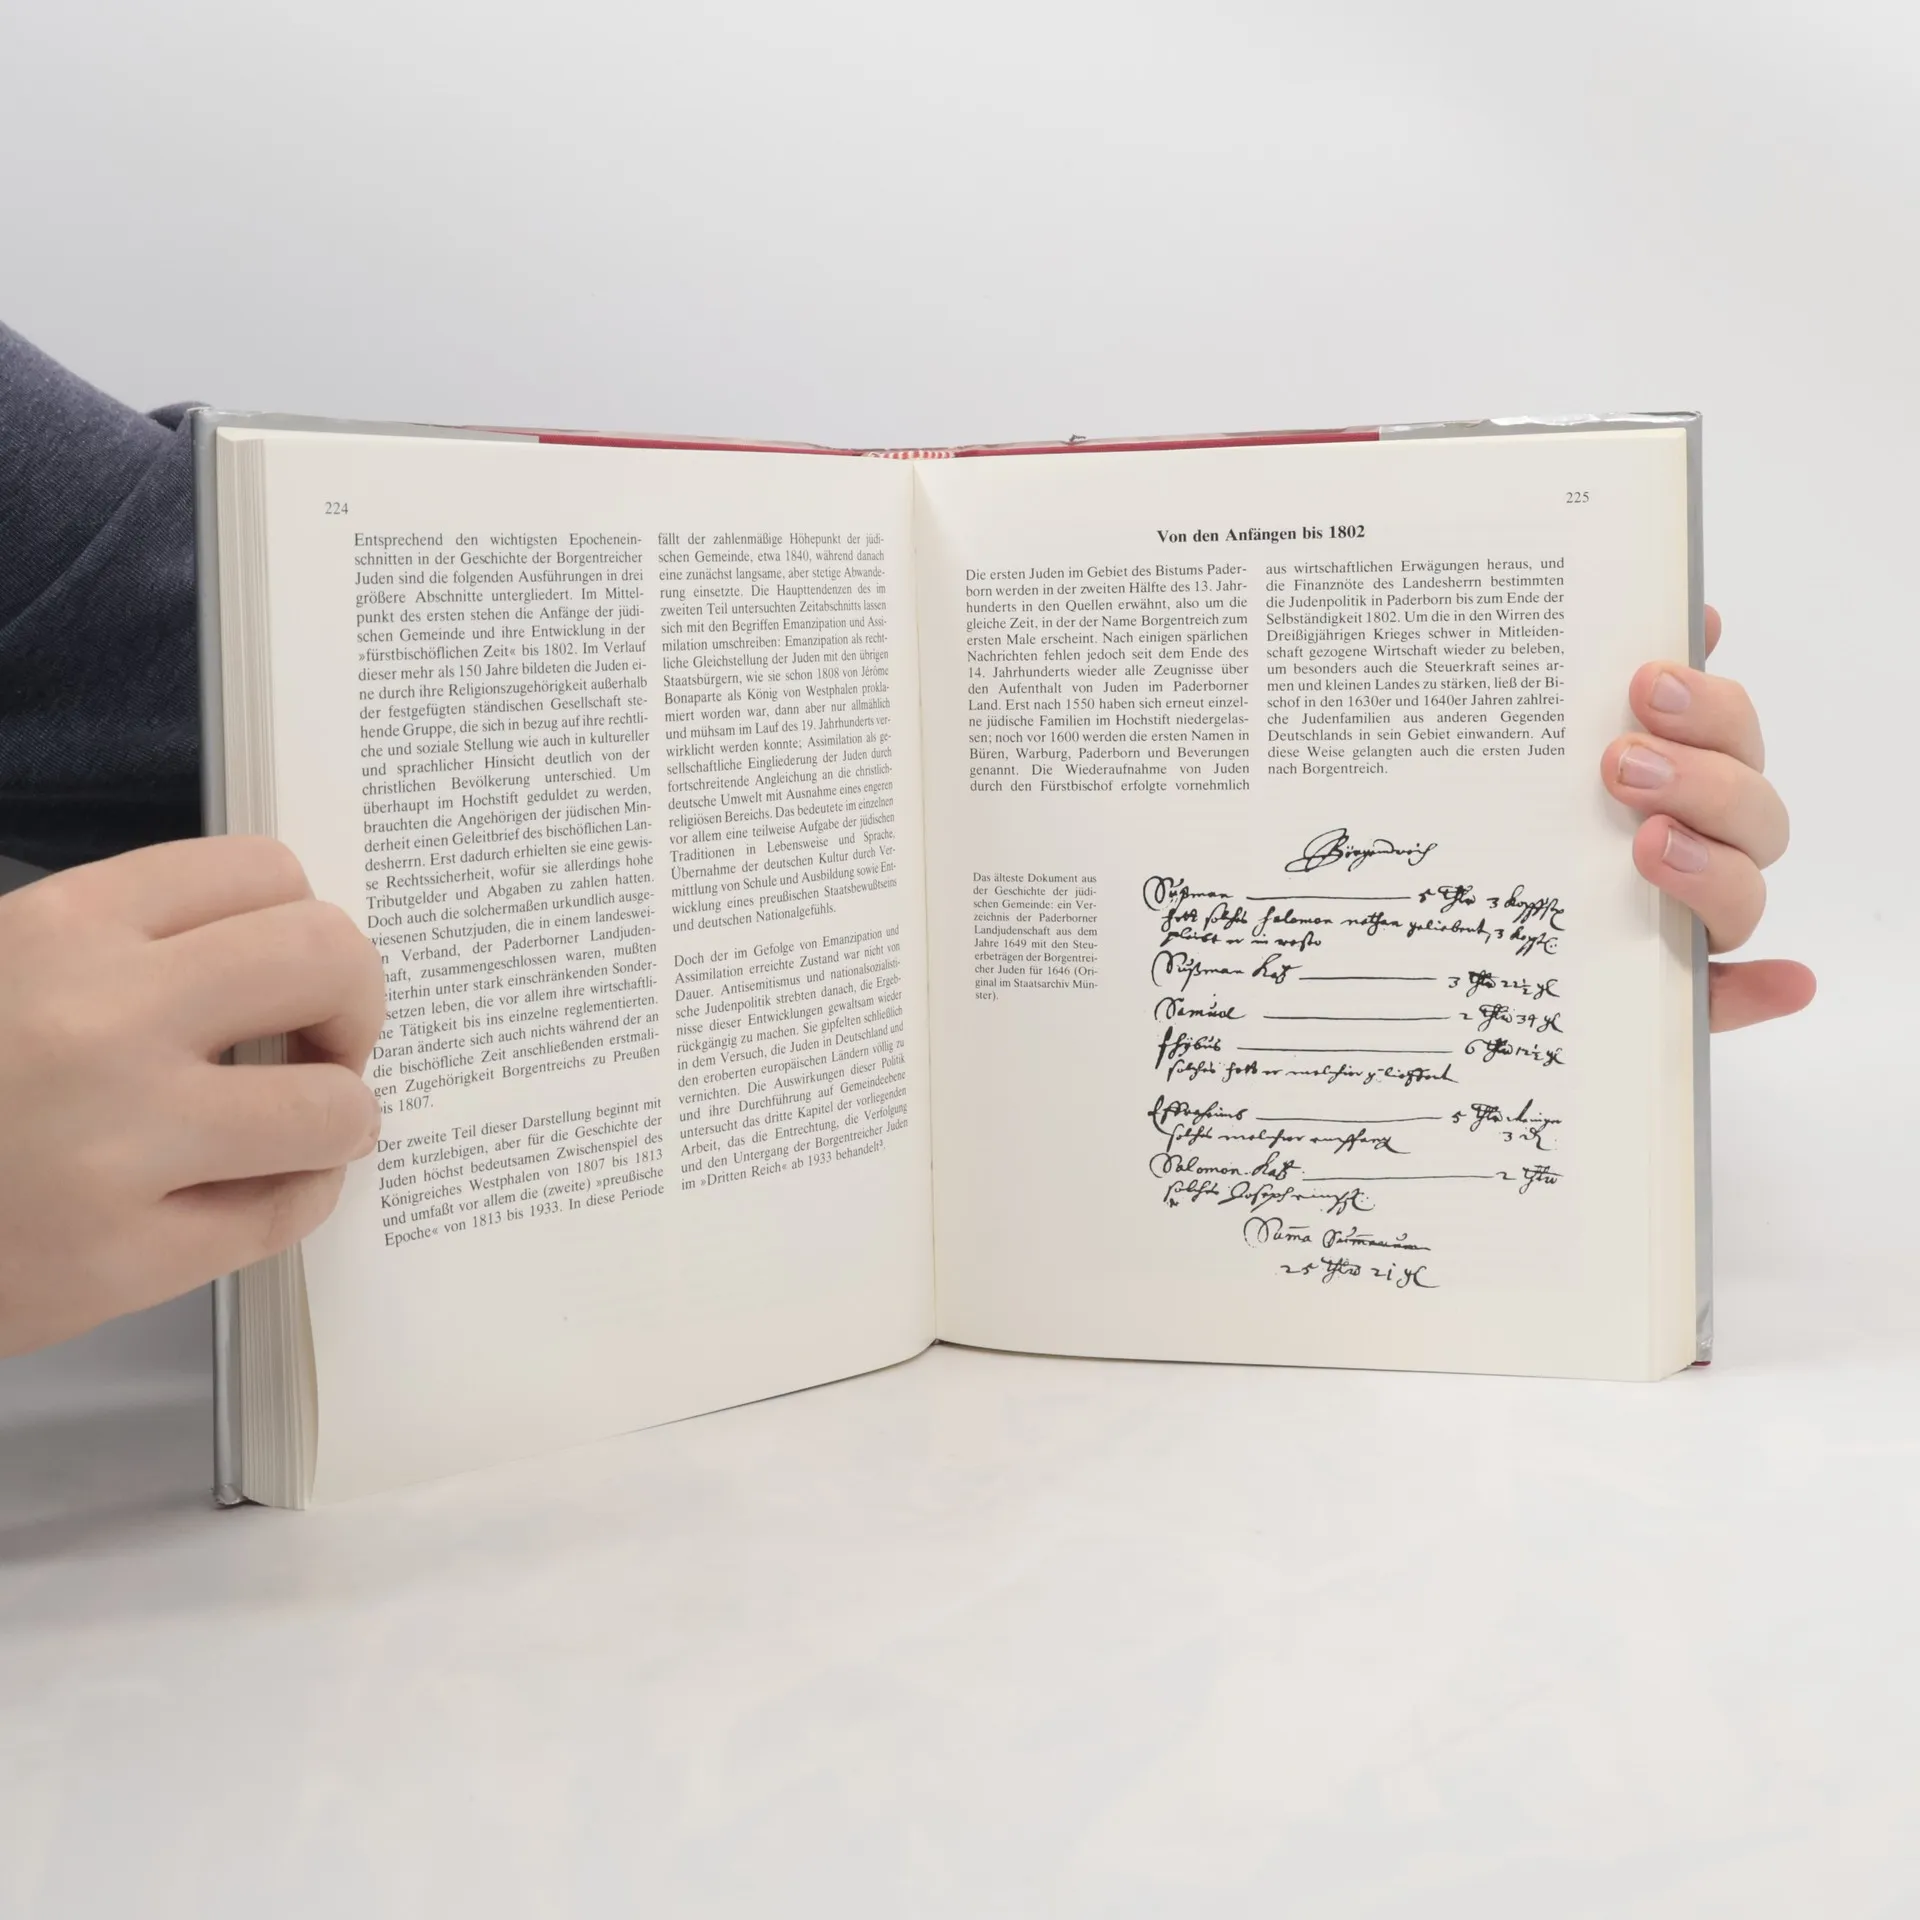 224
Entsprechend den wichtigsten Epochenein-
schnitten in der Geschichte der Borgentreicher
Juden sind die folgenden Ausführungen in drei
größere Abschnitte untergliedert. Im Mittel-
punkt des ersten stehen die Anfänge der jüdi-
schen Gemeinde und ihre Entwicklung in der
»fürstbischöflichen Zeit« bis 1802. Im Verlauf
dieser mehr als 150 Jahre bildeten die Juden ei-
ne durch ihre Religionszugehörigkeit außerhalb
der festgefügten ständischen Gesellschaft ste-
hende Gruppe, die sich in bezug auf ihre rechtli-
che und soziale Stellung wie auch in kultureller
und sprachlicher Hinsicht deutlich von der
christlichen Bevölkerung unterschied. Um
überhaupt im Hochstift geduldet zu werden,
brauchten die Angehörigen der jüdischen Min-
derheit einen Geleitbrief des bischöflichen Lan-
desherrn. Erst dadurch erhielten sie eine gewis-
se Rechtssicherheit, wofür sie allerdings hohe
Tributgelder und Abgaben zu zahlen hatten.
Doch auch die solchermaßen urkundlich ausge-
wiesenen Schutzjuden, die in einem landeswei-
n Verband, der Paderborner Landjuden-
haft, zusammengeschlossen waren, mußten
eiterhin unter stark einschränkenden Sonder-
setzen leben, die vor allem ihre wirtschaftli-
he Tätigkeit bis ins einzelne reglementierten.
Daran änderte sich auch nichts während der an
die bischöfliche Zeit anschließenden erstmali-
gen Zugehörigkeit Borgentreichs zu Preußen
bis 1807.
Der zweite Teil dieser Darstellung beginnt mit
dem kurzlebigen, aber für die Geschichte der
Juden höchst bedeutsamen Zwischenspiel des
Königreiches Westphalen von 1807 bis 1813
und umfaßt vor allem die (zweite) »preußische
Epoche« von 1813 bis 1933. In diese Periode
fällt der zahlenmäßige Höhepunkt der jüdi-
schen Gemeinde, etwa 1840, während danach
eine zunächst langsame, aber stetige Abwande-
rung einsetzte. Die Haupttendenzen des im
zweiten Teil untersuchten Zeitabschnitts lassen
sich mit den Begriffen Emanzipation und Assi-
milation umschreiben: Emanzipation als recht-
liche Gleichstellung der Juden mit den übrigen
Staatsbürgern, wie sie schon 1808 von Jérôme
Bonaparte als König von Westphalen prokla-
miert worden war, dann aber nur allmählich
und mühsam im Lauf des 19. Jahrhunderts ver-
wirklicht werden konnte; Assimilation als ge-
sellschaftliche Eingliederung der Juden durch
fortschreitende Angleichung an die christlich-
deutsche Umwelt mit Ausnahme eines engeren
religiösen Bereichs. Das bedeutete im einzelnen
vor allem eine teilweise Aufgabe der jüdischen
Traditionen in Lebensweise und Sprache,
Übernahme der deutschen Kultur durch Ver-
mittlung von Schule und Ausbildung sowie Ent-
wicklung eines preußischen Staatsbewußtseins
und deutschen Nationalgefühls.
Doch der im Gefolge von Emanzipation und
Assimilation erreichte Zustand war nicht von
Dauer. Antisemitismus und nationalsozialisti-
sche Judenpolitik strebten danach, die Ergeb-
nisse dieser Entwicklungen gewaltsam wieder
rückgängig zu machen. Sie gipfelten schließlich
in dem Versuch, die Juden in Deutschland und
den eroberten europäischen Ländern völlig zu
vernichten. Die Auswirkungen dieser Politik
und ihre Durchführung auf Gemeindeebene
untersucht das dritte Kapitel der vorliegenden
Arbeit, das die Entrechtung, die Verfolgung
und den Untergang der Borgentreicher Juden
im »Dritten Reich« ab 1933 behandelt³.
225
Von den Anfängen bis 1802
Die ersten Juden im Gebiet des Bistums Pader-
born werden in der zweiten Hälfte des 13. Jahr-
hunderts in den Quellen erwähnt, also um die
gleiche Zeit, in der der Name Borgentreich zum
ersten Male erscheint. Nach einigen spärlichen
Nachrichten fehlen jedoch seit dem Ende des
14. Jahrhunderts wieder alle Zeugnisse über
den Aufenthalt von Juden im Paderborner
Land. Erst nach 1550 haben sich erneut einzel-
ne jüdische Familien im Hochstift niedergelas-
sen; noch vor 1600 werden die ersten Namen in
Büren, Warburg, Paderborn und Beverungen
genannt. Die Wiederaufnahme von Juden
durch den Fürstbischof erfolgte vornehmlich
aus wirtschaftlichen Erwägungen heraus, und
die Finanznöte des Landesherrn bestimmten
die Judenpolitik in Paderborn bis zum Ende der
Selbständigkeit 1802. Um die in den Wirren des
Dreißigjährigen Krieges schwer in Mitleiden-
schaft gezogene Wirtschaft wieder zu beleben,
um besonders auch die Steuerkraft seines ar-
men und kleinen Landes zu stärken, ließ der Bi-
schof in den 1630er und 1640er Jahren zahlrei-
che Judenfamilien aus anderen Gegenden
Deutschlands in sein Gebiet einwandern. Auf
diese Weise gelangten auch die ersten Juden
nach Borgentreich.
Das älteste Dokument aus
der Geschichte der jüdi-
schen Gemeinde: ein Ver-
zeichnis der Paderborner
Landjudenschaft aus dem
Jahre 1649 mit den Steu-
erbeträgen der Borgentrei-
cher Juden für 1646 (Ori-
ginal im Staatsarchiv Mün-
ster).
Süßman 5 3
solches Salomon nathan 3
Süßman Katz 3 22½
Samuel 2
6 12½
solches
5
solches 3
Salomon Katz 2
solches Joseph
Suma Sumarum
25 21